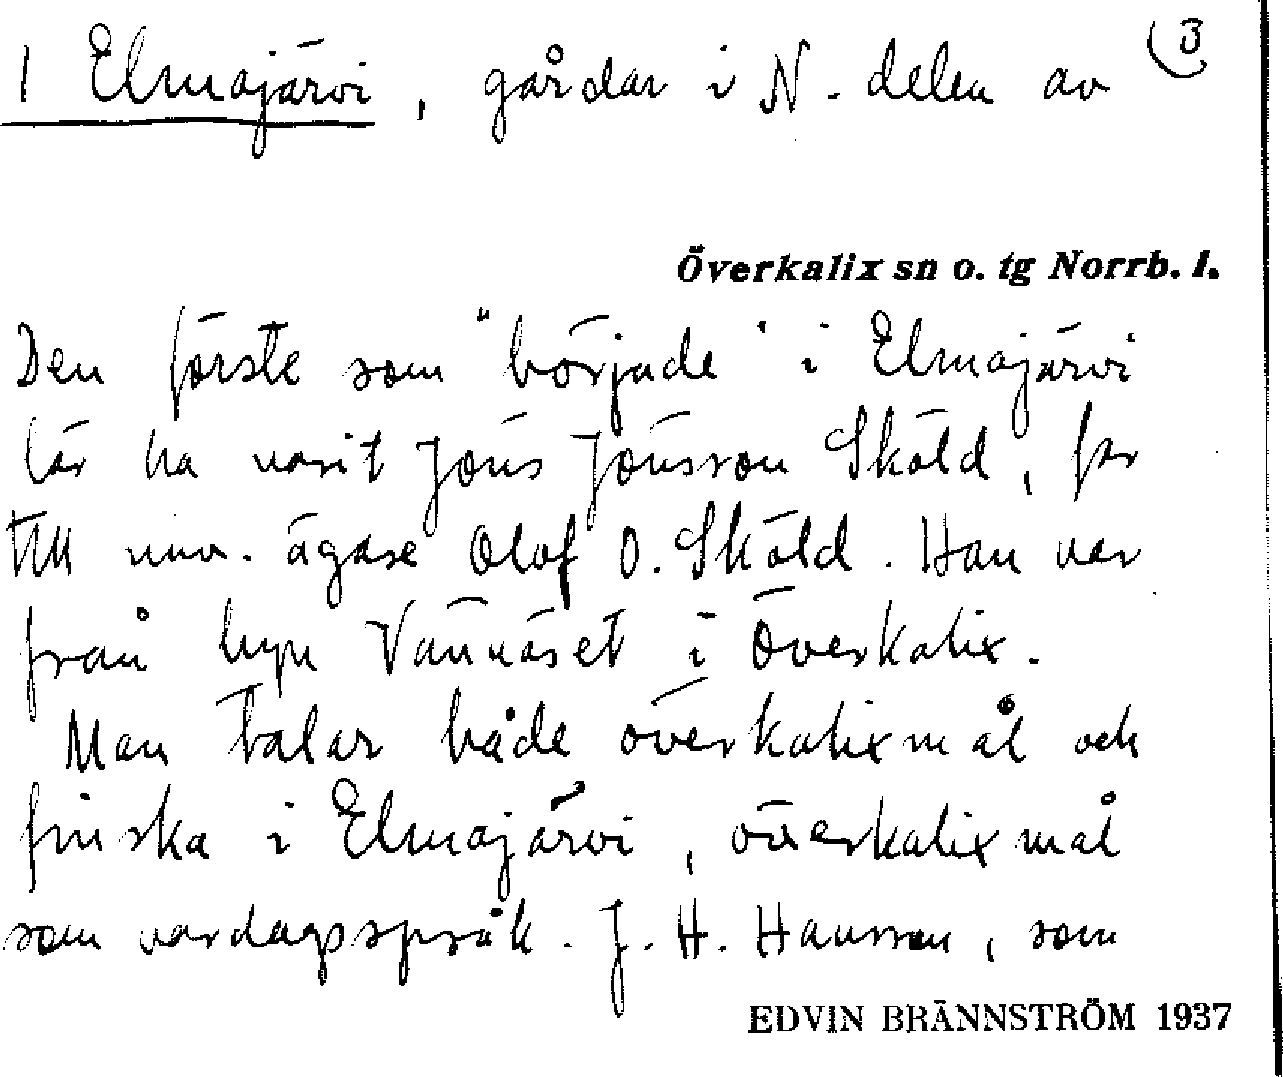 1 Elmajärvi, gårdar i N. delen av
3
Överkalix sn o. tg Norrb. l.
Den förste som "började" i Elmajärvi
lär ha varit Jöns Jönsson Sköld, far
till nuv. ägare Olof O. Sköld. Han var
från byn Vännäset i Överkalix.
Man talar både överkalixmål och
finska i Elmajärvi, överkalixmål
som vardagsspråk. J. H. Hansson, som
EDVIN BRÄNNSTRÖM 1937